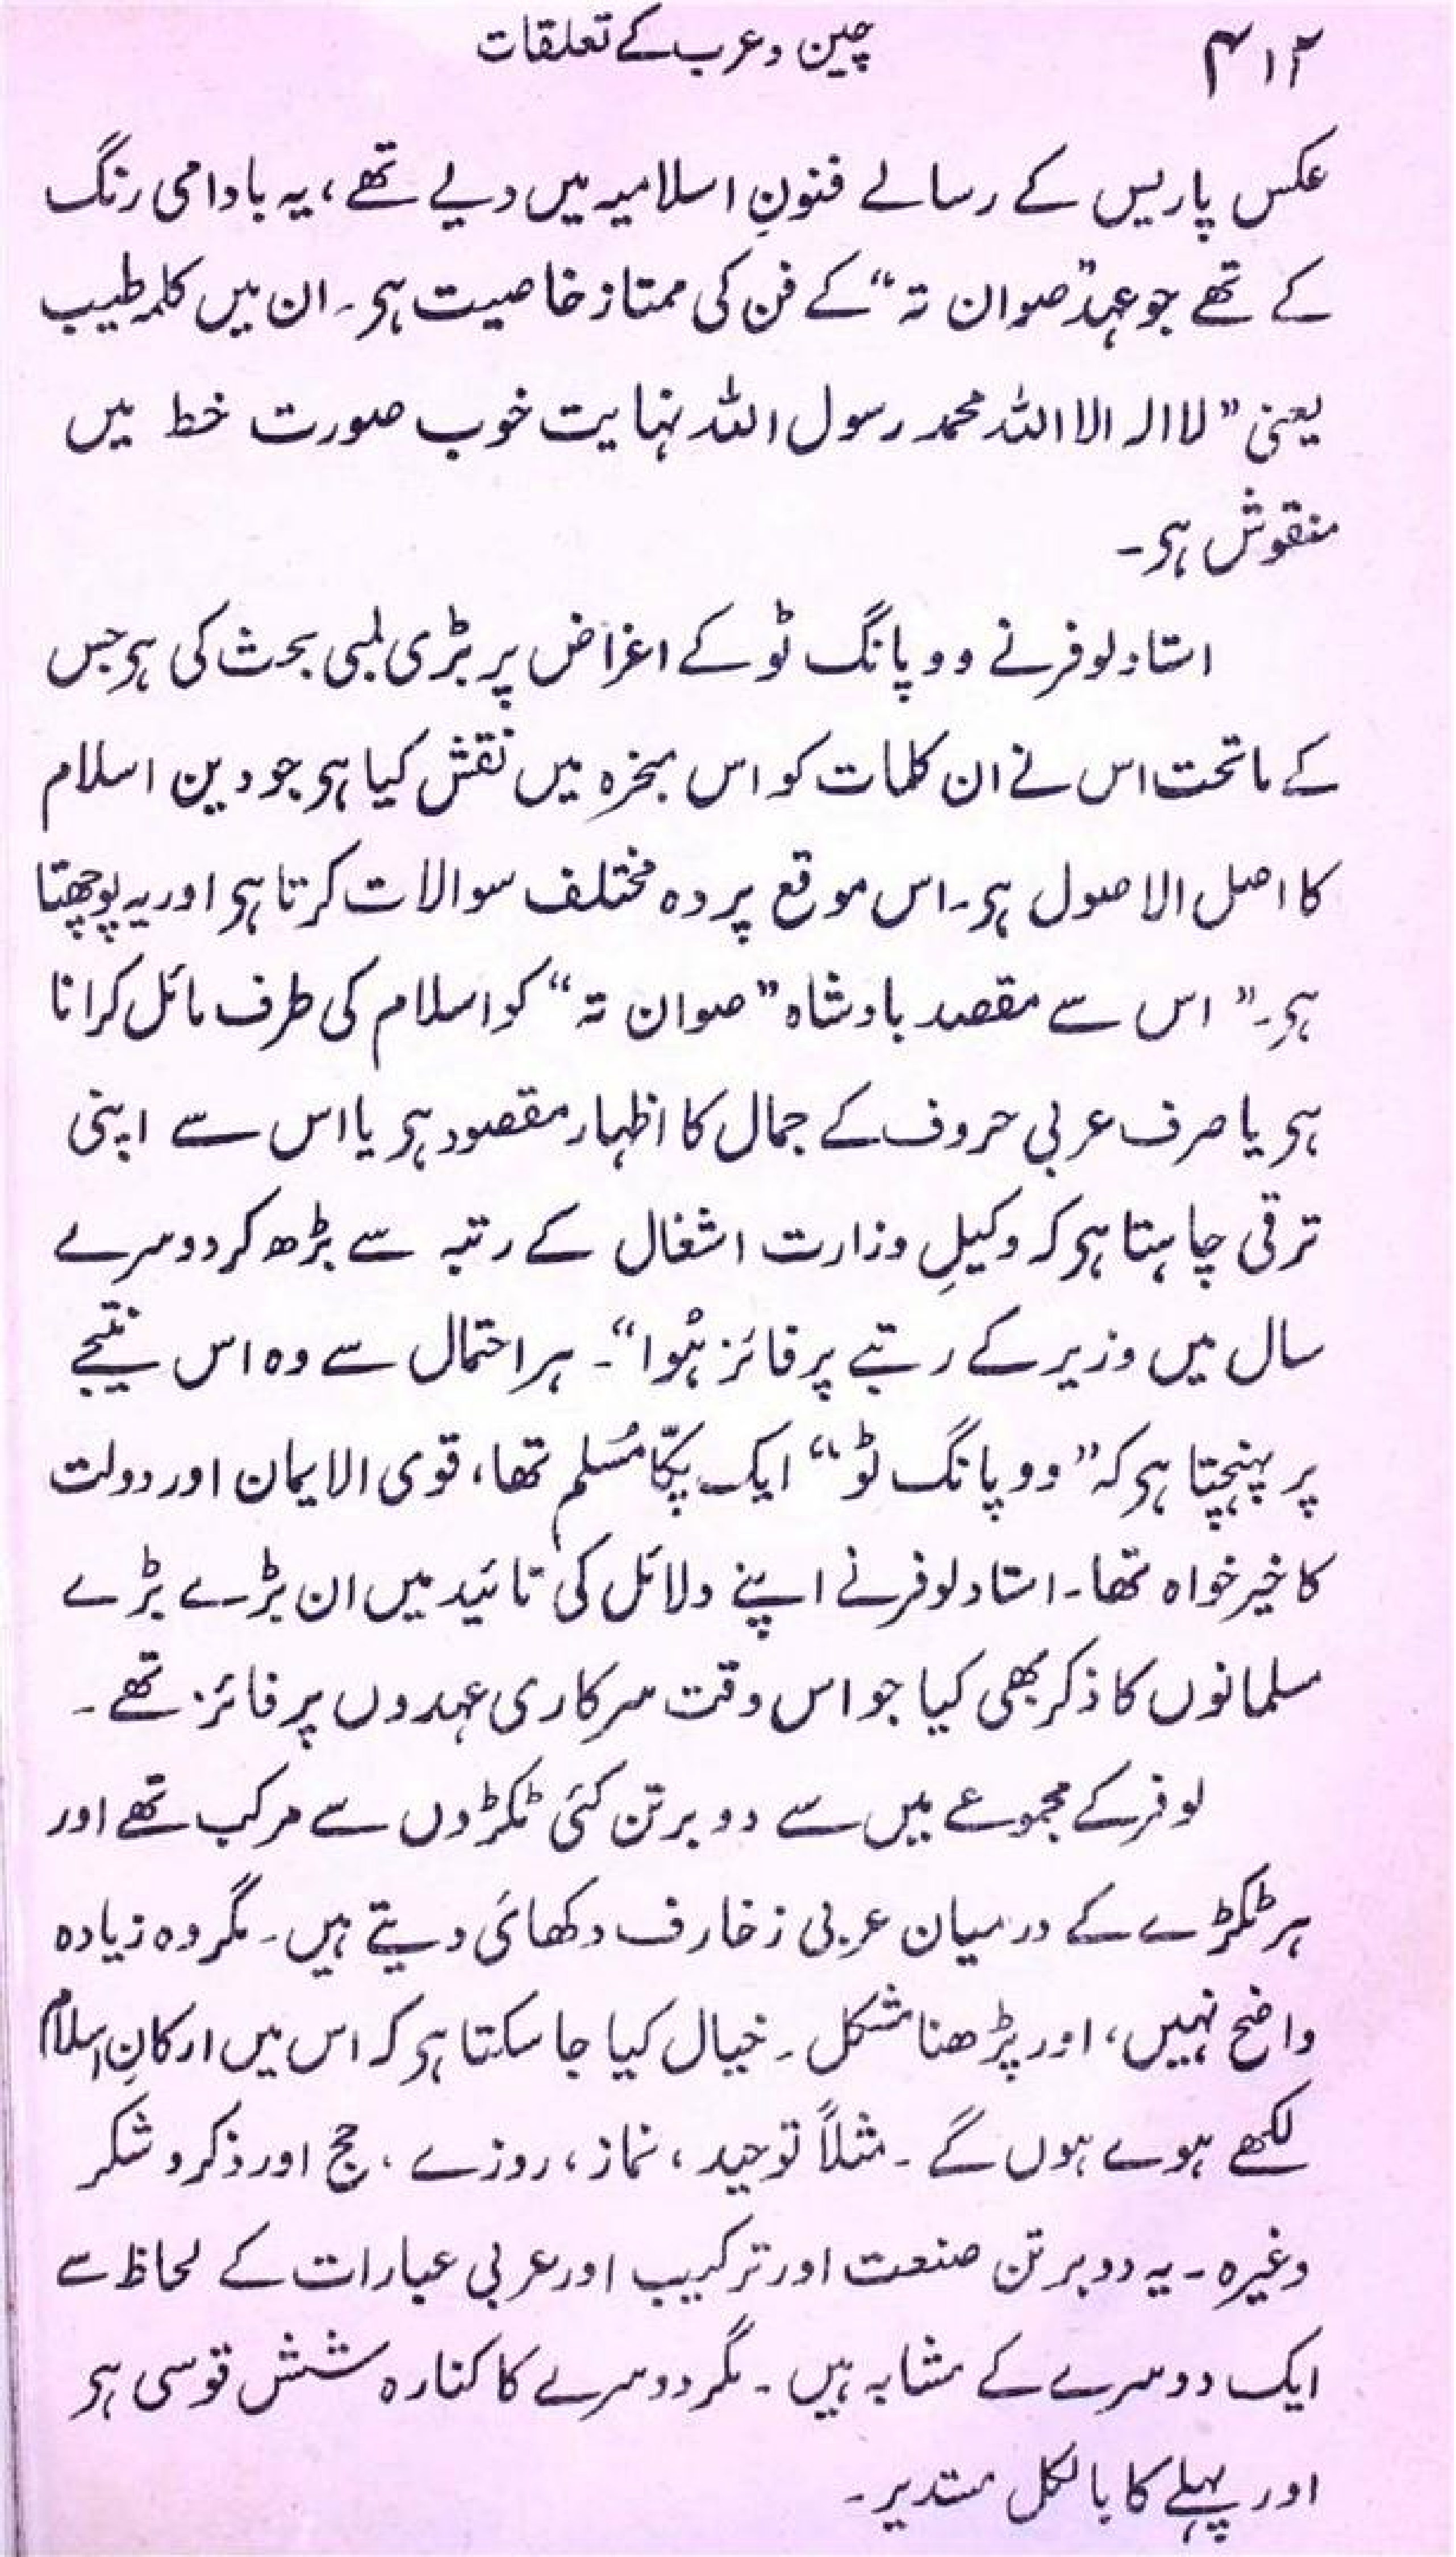 ۴۱۲ چین و عرب کے تعلقات
عکس پاریس کے رسالے فنونِ اسلامیہ میں دیے تھے، یہ بادامی رنگ
کے تھے جو عہد ”صوان تہ“ کے فن کی ممتاز خاصیت ہی۔ ان میں کلمہ طیب
یعنی ”لا الہ الا اللہ محمد رسول اللہ نہایت خوب صورت خط میں
منقوش ہی۔
استاد لوفر نے وو پانگ ٹو کے اغراض پر بڑی لمبی بحث کی ہی جس
کے ماتحت اس نے ان کلمات کو اس مبخرہ میں نقش کیا ہی جو دین اسلام
کا اصل الاصول ہی۔ اس موقع پر وہ مختلف سوالات کرتا ہی اور یہ پوچھتا
ہی۔ ” اس سے مقصد بادشاہ ”صوان تہ“ کو اسلام کی طرف مائل کرانا
ہی یا صرف عربی حروف کے جمال کا اظہار مقصود ہی یا اس سے اپنی
ترقی چاہتا ہی کہ وکیلِ وزارت اشغال کے رتبہ سے بڑھ کر دوسرے
سال میں وزیر کے رتبے پر فائز ہُوا“۔ ہر احتمال سے وہ اس نتیجے
پر پہنچتا ہی کہ ”وو پانگ ٹو“ ایک پکّا مُسلم تھا، قوی الایمان اور دولت
کا خیر خواہ تھا۔ استاد لوفر نے اپنے دلائل کی تائید میں ان بڑے بڑے
مسلمانوں کا ذکر بھی کیا جو اس وقت سرکاری عہدوں پر فائز تھے۔
لوفر کے مجموعے میں سے دو برتن کئی ٹکڑوں سے مرکب تھے اور
ہر ٹکڑے کے درمیان عربی زخارف دکھائی دیتے ہیں۔ مگر وہ زیادہ
واضح نہیں، اور پڑھنا مشکل۔ خیال کیا جا سکتا ہی کہ اس میں ارکانِ اسلام
لکھے ہوے ہوں گے۔ مثلاً توحید، نماز، روزے، حج اور ذکر و شکر
وغیرہ۔ یہ دو برتن صنعت اور ترکیب اور عربی عبارات کے لحاظ سے
ایک دوسرے کے مشابہ ہیں۔ مگر دوسرے کا کنارہ شش قوسی ہی
اور پہلے کا بالکل مستدیر۔